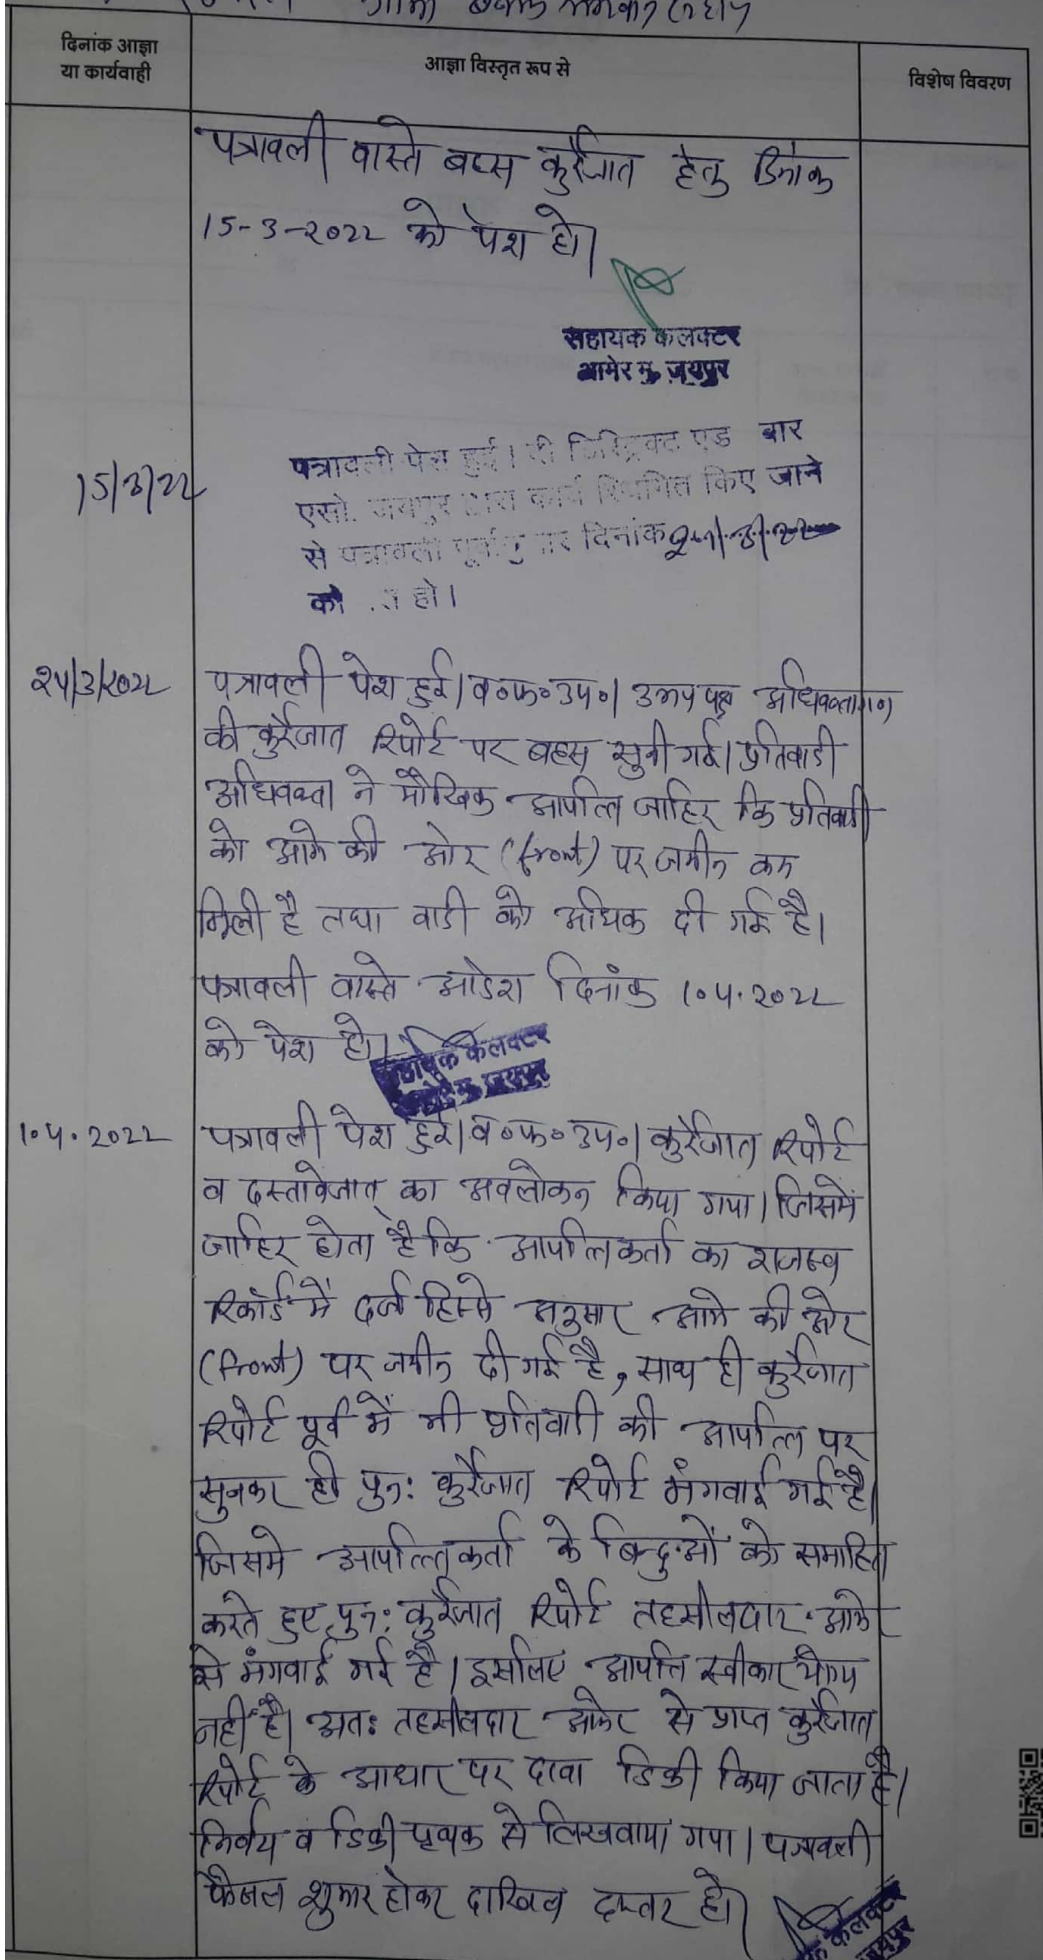 दिनांक आज्ञा
या कार्यवाही
आज्ञा विस्तृत रूप से
विशेष विवरण
पत्रावली वास्ते बहस कुर्रेजात हेतु दिनांक
15-3-2022 को पेश हो।
सहायक कलक्टर
आमेर मु. जयपुर
15/3/22
पत्रावली पेश हुई। दी डिस्ट्रिक्ट एड बार
एसो. जयपुर द्वारा कार्य स्थगित किए जाने
से पत्रावली पूर्वानुसार दिनांक
को हो।
24/3/2022
पत्रावली पेश हुई। व०फ०उप०। उभय पक्ष अधिवक्तागण
की कुर्रेजात रिपोर्ट पर बहस सुनी गई। प्रतिवादी
अधिवक्ता ने मौखिक आपत्ति जाहिर कि प्रतिवादी
को आगे की ओर (front) पर जमीन कम
मिली है तथा वादी को अधिक दी गई है।
पत्रावली वास्ते आदेश दिनांक 1.4.2022
को पेश हो।
सहायक कलक्टर
आमेर मु. जयपुर
1.4.2022
पत्रावली पेश हुई। व०फ०उप०। कुर्रेजात रिपोर्ट
व दस्तावेजात् का अवलोकन किया गया। जिसमें
जाहिर होता है कि आपत्तिकर्ता का राजस्व
रिकॉर्ड में दर्ज हिस्से अनुसार आगे की ओर
(front) पर जमीन दी गई है, साथ ही कुर्रेजात
रिपोर्ट पूर्व में भी प्रतिवादी की आपत्ति पर
सुनकर ही पुन: कुर्रेजात रिपोर्ट मंगवाई गई है।
जिसमे आपत्तिकर्ता के बिन्दुओं को समाहित
करते हुए पुन: कुर्रेजात रिपोर्ट तहसीलदार आमेर
से मंगवाई गई है। इसलिए आपत्ति स्वीकार योग्य
नहीं है। अत: तहसीलदार आमेर से प्राप्त कुर्रेजात
रिपोर्ट के आधार पर दावा डिक्री किया जाता है।
निर्णय व डिक्री पृथक से लिखवाया गया। पत्रावली
फैसल शुमार होकर दाखिल दफ्तर हो।
कलक्टर
जयपुर